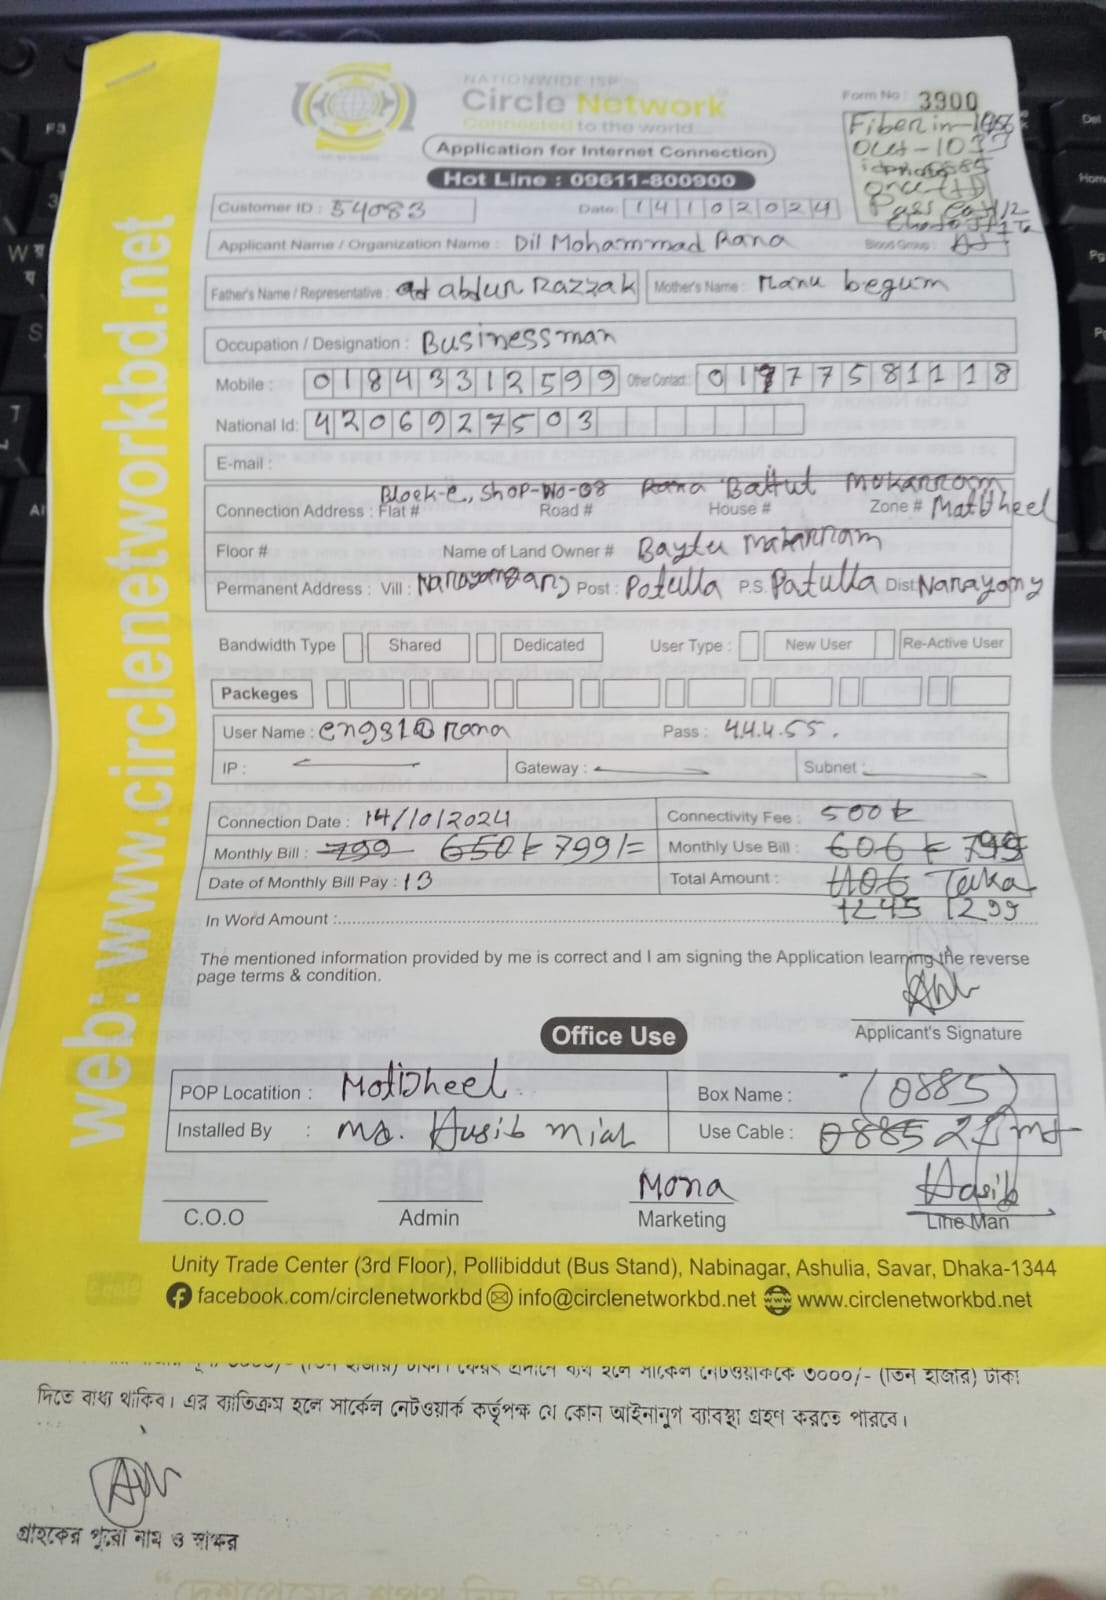 NATIONWIDE ISP
Circle Network
Connected to the world
Application for Internet Connection
Hot Line : 09611-800900
Form No : 3900
Fiber in-
Out-
Customer ID : 54083 Date: 14102024
Applicant Name / Organization Name : Dil Mohammad Rana Blood Group :
Father's Name / Representative : abdur Razzak Mother's Name : Manu begum
Occupation / Designation : Businessman
Mobile : 01843312599 Other Contact: 01977581118
National Id: 4206927503
E-mail :
Block-e, Shop-No-08 Rana Baitul Mokarrom
Connection Address : Flat # Road # House # Zone # Motijheel
Floor # Name of Land Owner # Baytu Makarram
Permanent Address : Vill : Narayanganj Post : Potulla P.S. Patulla Dist: Narayang
Bandwidth Type Shared Dedicated User Type : New User Re-Active User
Packeges
User Name : eng31@rana Pass : 4.4.4.55.
IP : Gateway : Subnet :
Connection Date : 14/10/2024 Connectivity Fee : 500 ৳
Monthly Bill : 799 650৳ 799/= Monthly Use Bill : 606 ৳ 799
Date of Monthly Bill Pay : 13 Total Amount : 1106 Taka
In Word Amount : 1245 1299
The mentioned information provided by me is correct and I am signing the Application learning the reverse
page terms & condition.
Applicant's Signature
Office Use
POP Locatition : Motijheel Box Name : (0885)
Installed By : Md. Hasib Miah Use Cable : 0885
Mona Hasib
C.O.O Admin Marketing Line Man
Unity Trade Center (3rd Floor), Pollibiddut (Bus Stand), Nabinagar, Ashulia, Savar, Dhaka-1344
facebook.com/circlenetworkbd info@circlenetworkbd.net www.circlenetworkbd.net
web: www.circlenetworkbd.net
৩০০০/- (তিন হাজার) টাকা
দিতে বাধ্য থাকিব। এর ব্যতিক্রম হলে সার্কেল নেটওয়ার্ক কর্তৃপক্ষ যে কোন আইনানুগ ব্যবস্থা গ্রহণ করতে পারবে।
গ্রাহকের পুরো নাম ও স্বাক্ষর